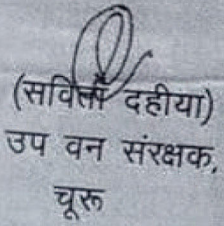 (सविता दहीया)
उप वन संरक्षक,
चूरू